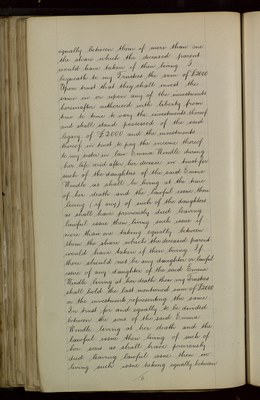 equally between them if more than one
the share which the deceased parent
would have taken if then living I
bequeath to my Trustees the sum of £2000
Upon trust that they shall invest the
same in or upon any of the investments
hereinafter authorized with liberty from
time to time to vary the investments thereof
and shall stand possessed of the said
legacy of £2000 and the investments
thereof in trust to pay the income thereof
to my sister in law Emma Windle during
her life and after her decease in trust for
such of the daughters of the said Emma
Windle as shall be living at the time
of her death and the lawful issue then
living (if any) of such of the daughters
as shall have previously died leaving
lawful issue then living such issue if
more than one taking equally between
them the share which the deceased parent
would have taken if then living If
there should not be any daughter or lawful
issue of any daughter of the said Emma
Windle living at her death then my Trustees
shall hold the last mentioned sum of £2000
or the investments representing the same
In trust for and equally to be divided
between the sons of the said Emma
Windle living at her death and the
lawful issue then living of such of
her sons as shall have previously
died leaving lawful issue then
living such issue taking equally between